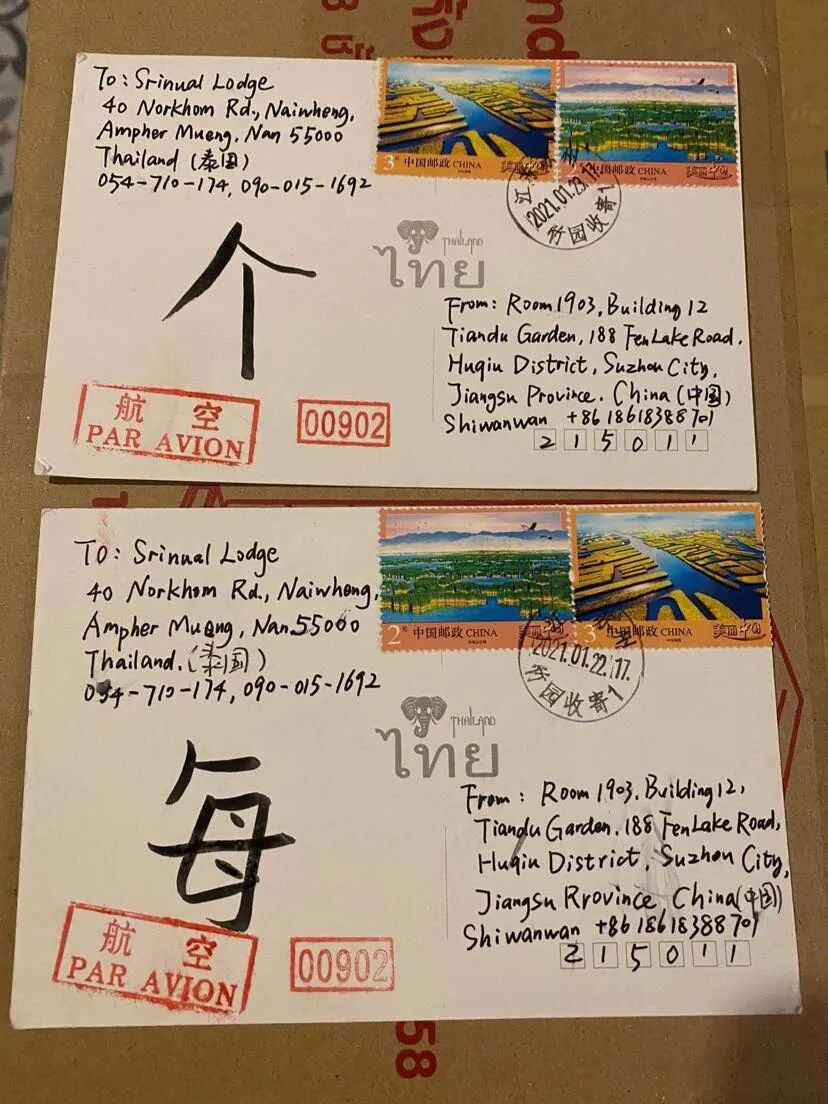 To: Srinual Lodge
40 Norkhom Rd., Naiwheng,
Ampher Mueng, Nan 55000
Thailand (泰国)
054-710-174, 090-015-1692
个
航 空
PAR AVION
00902
3元 中国邮政 CHINA 美丽中国
中国邮政 CHINA 美丽中国
2021.01.23.17
竹园收寄1
THAILAND
ไทย
From: Room 1903, Building 12
Tiandu Garden, 188 FenLake Road,
Huqiu District, Suzhou City,
Jiangsu Province. China (中国)
Shiwanwan +86 18618388701
215011
To: Srinual Lodge
40 Norkhom Rd., Naiwheng,
Ampher Mueng, Nan 55000
Thailand. (泰国)
054-710-174, 090-015-1692
每
航 空
PAR AVION
00902
2元 中国邮政 CHINA 美丽中国
3元 中国邮政 CHINA 美丽中国
2021.01.22.17
竹园收寄1
THAILAND
ไทย
From: Room 1903, Building 12,
Tiandu Garden, 188 FenLake Road,
Huqiu District, Suzhou City,
Jiangsu Rrovince, China (中国)
Shiwanwan +86 18618388701
215011
58